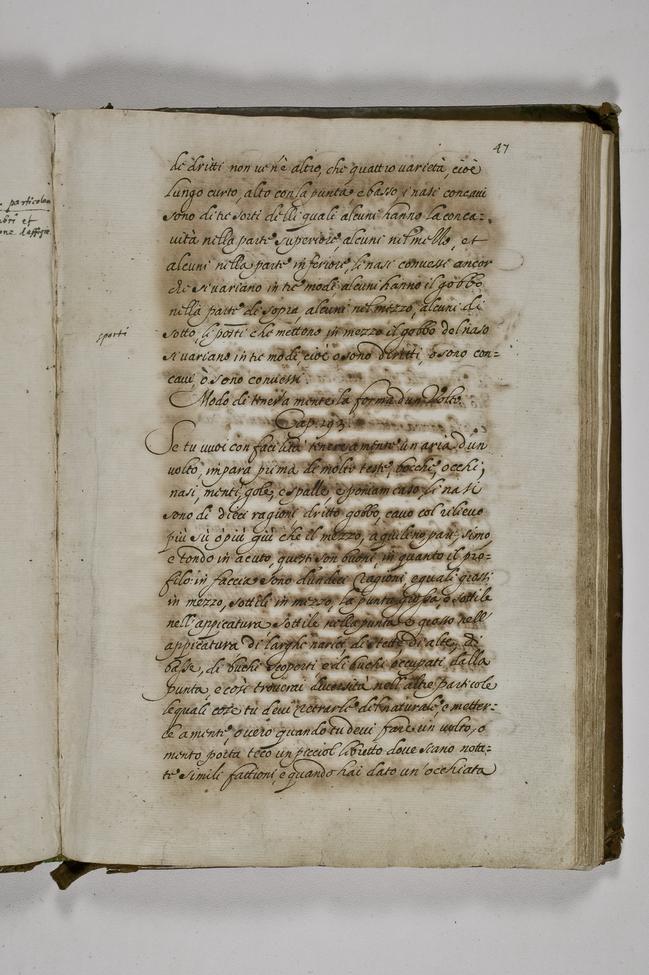 47
particolar
mbri et
one d'affige
de dritti non ve n'è altro, che quattro varietà, cioè
lungo curto, alto con la punta e basso, i nasi concavi
sono di tre sorti delli quali alcuni hanno la conca-
vità nella parte superiore, alcuni nel mezzo, et
alcuni nella parte inferiore, li nasi convessi ancor
che si variano in tre modi alcuni hanno il gobbo
nella parte di sopra alcuni nel mezzo, alcuni di
sporti
sotto, li porti che mettono in mezzo il gobbo del naso
si variano in tre modi, cioè o sono diritti, o sono con-
cavi, ò sono convessi.
Modo di tener a mente la forma d'un Volto.
Cap. 193.
Se tu vuoi con facilità tenere a mente un aria d'un
volto, impara prima di molte teste, bocchi, occhi,
nasi, menti, gole, e spalle, e poniam caso, li nasi
sono di dieci ragioni dritto gobbo, cavo col rilievo
più sù ò più giù che il mezzo, aquileno, pari, simo,
e tondo in acuto, questi son buoni, in quanto il pro-
filo in faccia sono d'undeci ragioni, equali grossi
in mezzo, sottili in mezzo, la punta grossa, o sottile
nell'appicatura sottile nella punta e grosso nell'
appicatura di larghe narici, di strette di alte, di
basse, di buchi scoperti e di buchi occupati dalla
punta, e così troverai diversità nell'altre particole
le quali cose tu devi ritrarle del naturale, e metter-
le a mente, overo quando tu devi fare un volto, o
mento, porta teco un picciol libretto dove siano nota-
te simili fattioni e quando hai dato un'occhiata